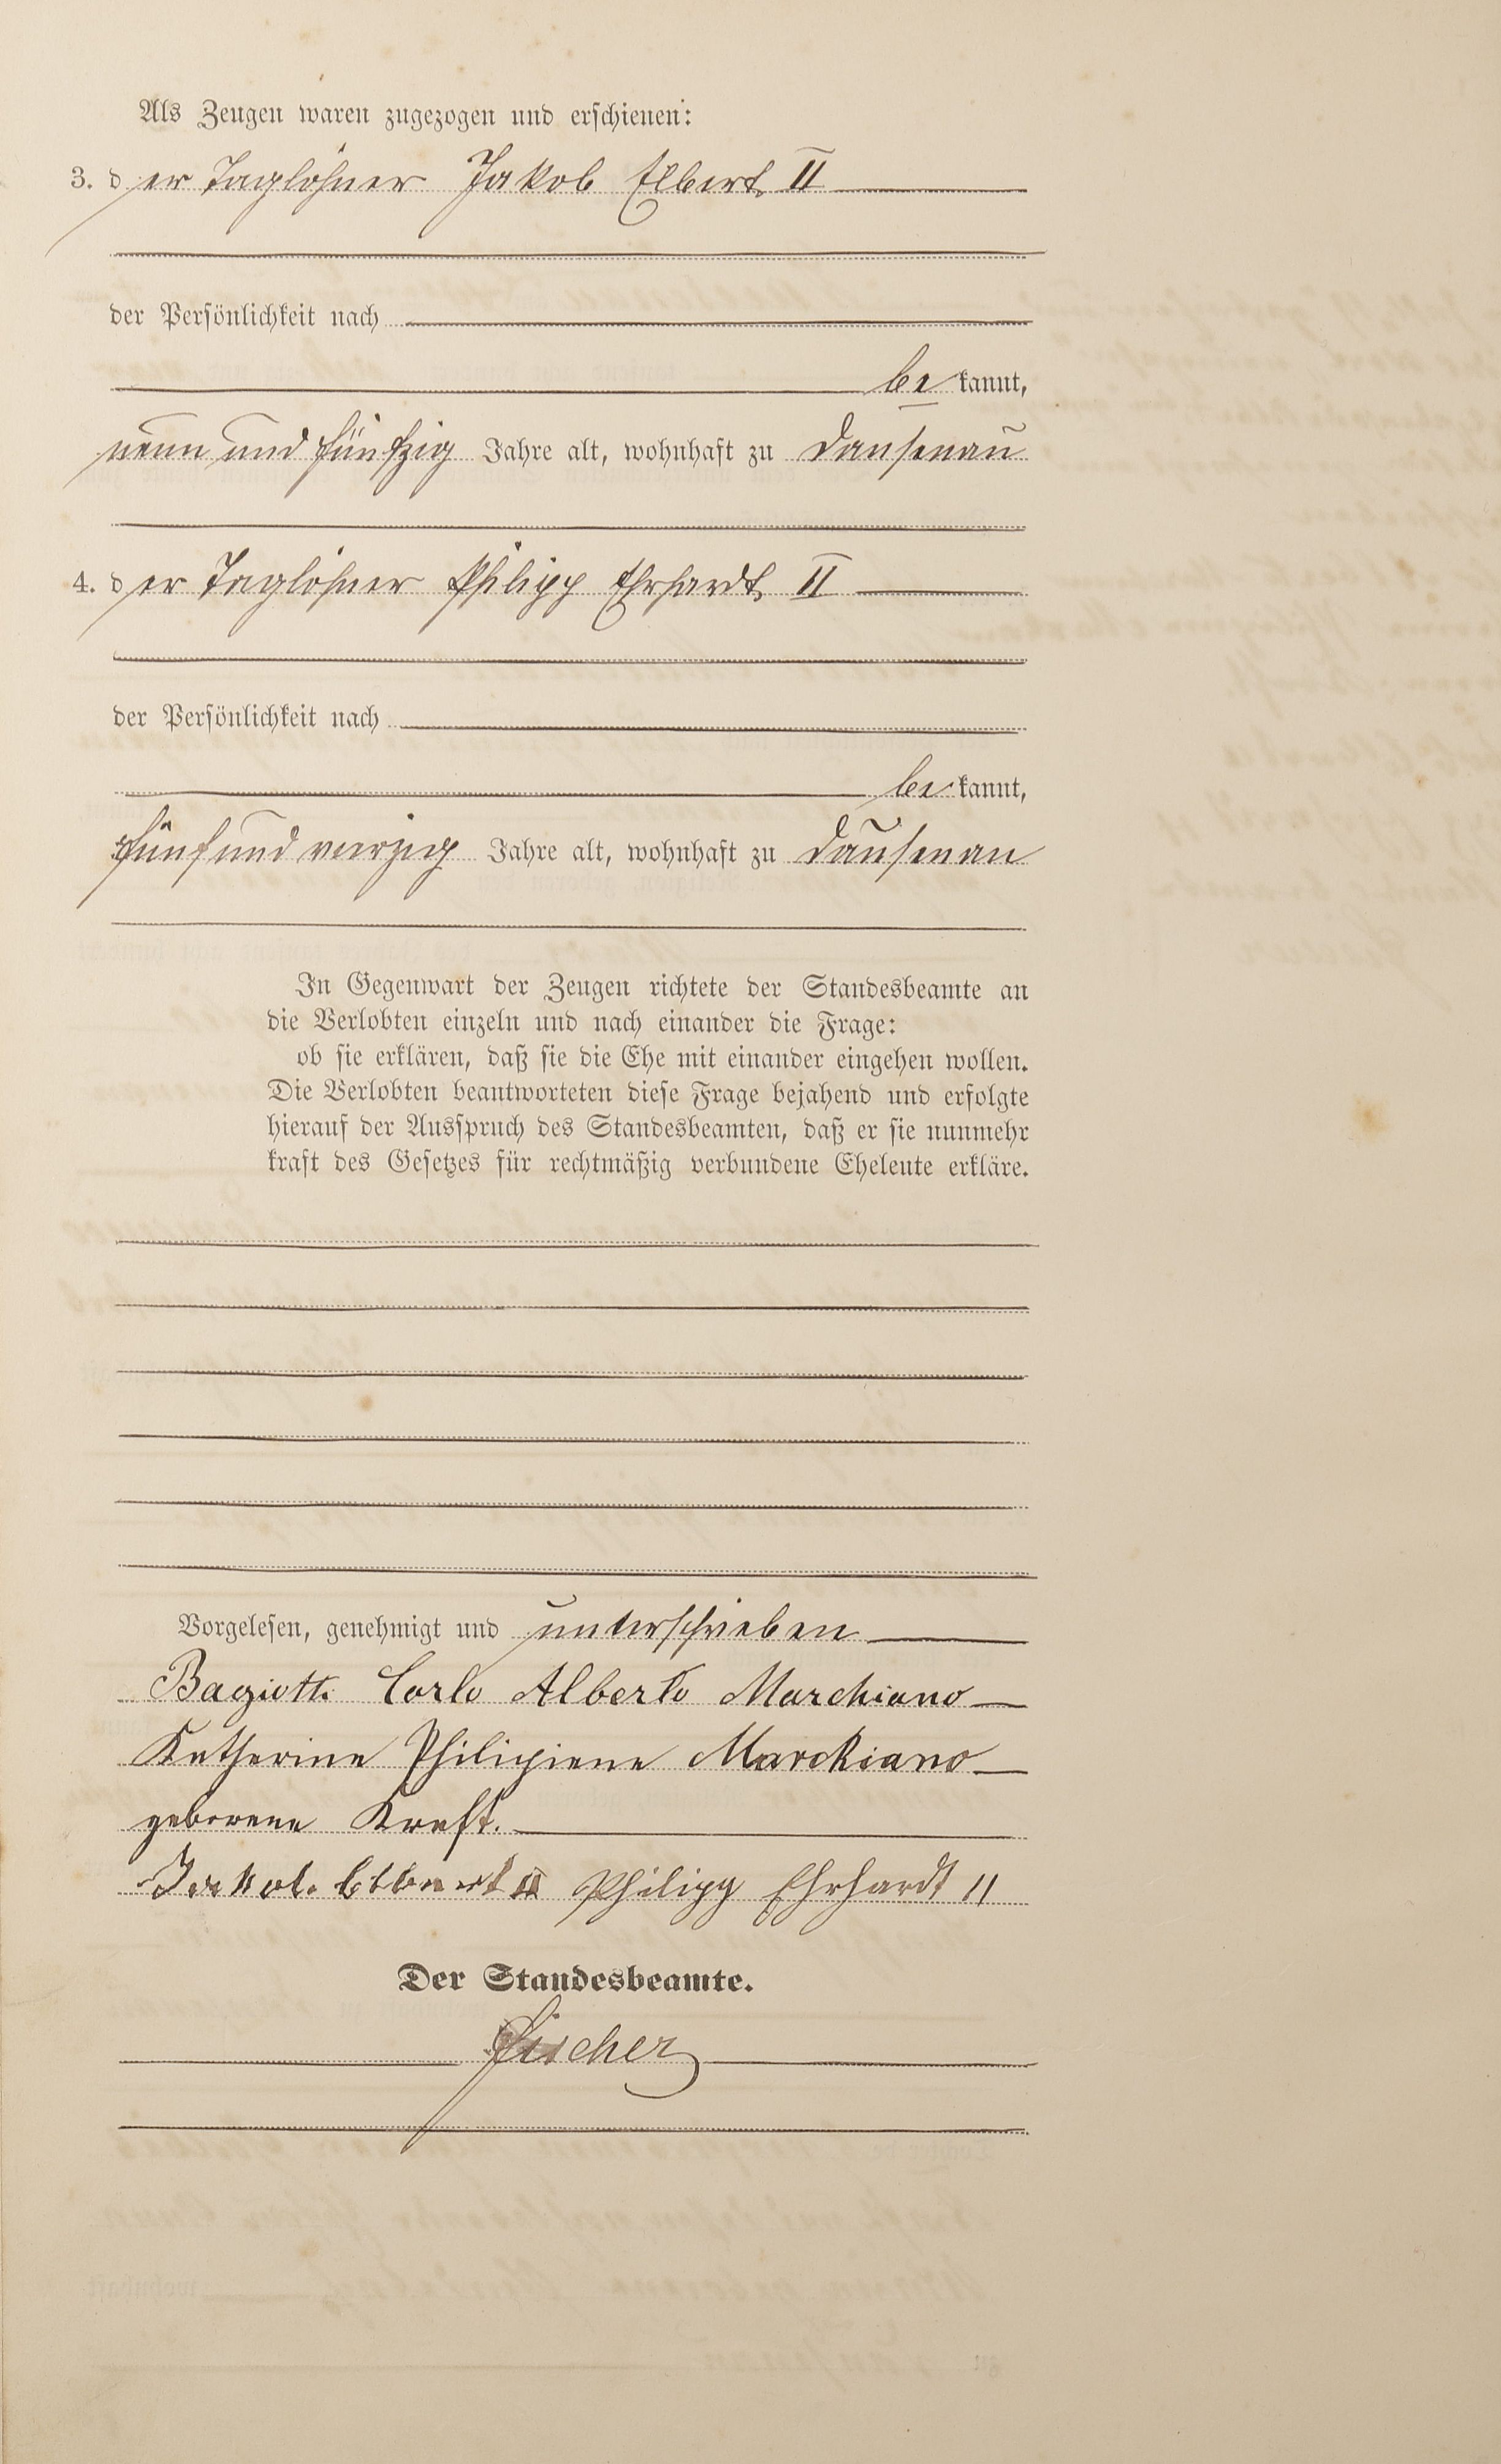 Als Zeugen waren zugezogen und erschienen:
3. der Taglöhner Jakob Elbert II
der Persönlichkeit nach
be kannt,
neun und fünfzig Jahre alt, wohnhaft zu Dausenau
4. der Taglöhner Philipp Ehrhardt II
der Persönlichkeit nach
be kannt,
fünf und vierzig Jahre alt, wohnhaft zu Dausenau
In Gegenwart der Zeugen richtete der Standesbeamte an
die Verlobten einzeln und nach einander die Frage:
ob sie erklären, daß sie die Ehe mit einander eingehen wollen.
Die Verlobten beantworteten diese Frage bejahend und erfolgte
hierauf der Ausspruch des Standesbeamten, daß er sie nunmehr
kraft des Gesetzes für rechtmäßig verbundene Eheleute erkläre.
Vorgelesen, genehmigt und unterschrieben
Bagiotti Carlo Alberto Marchiano
Katherine Philipiene Marchiano
geborene Kraft.
Jakob Elbert II Philipp Ehrhardt II
Der Standesbeamte.
Fischer